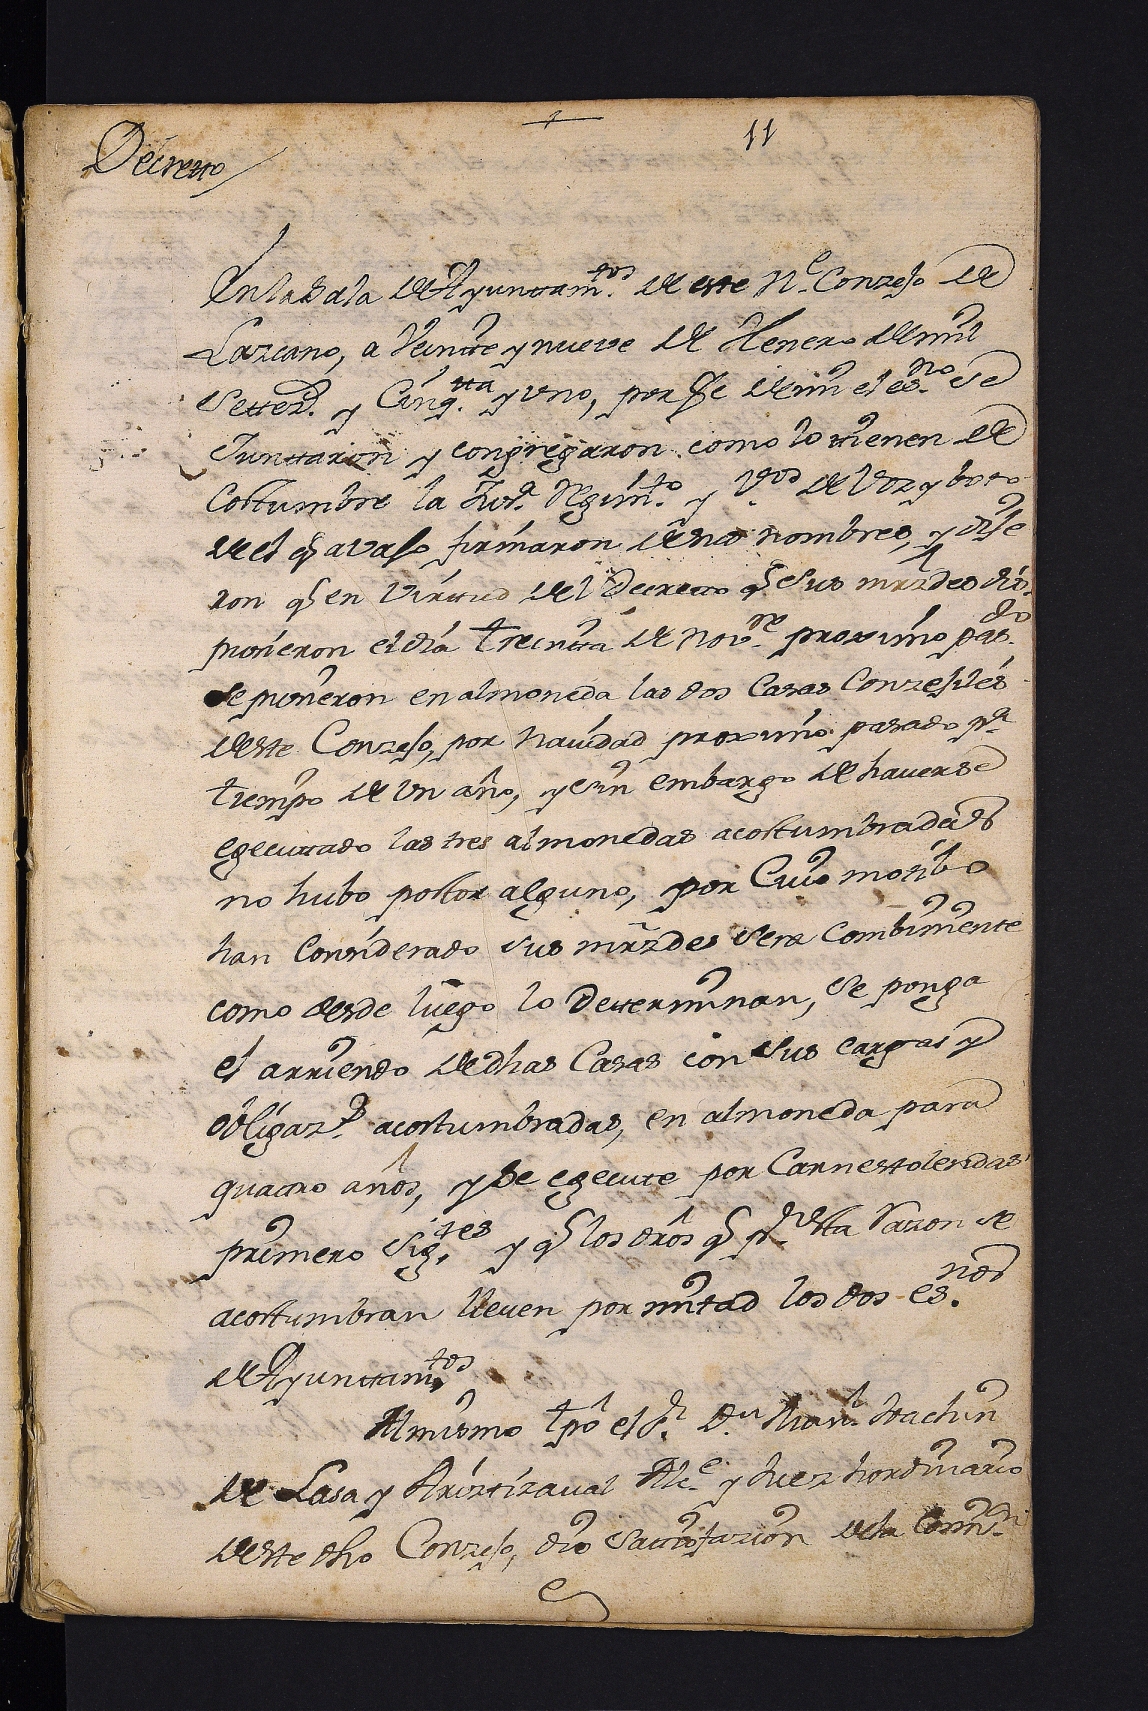 11
Decretto
En la Sala de Ayuntam.tos de este N.e Conzejo de
Lazcano, a Veintte y nueve de Henero de mil
Settez.s y Cinq.tta y Uno, por Fe de mi el es.no se
Junttaron y congregaron como lo tienen de
Costumbre la Jus.a Regim.to y V.os de Voz y boto
de el q avajo firmaron de sus nombres, y dije
ron q en Virttud del Decretto q Sus mrzdes dis
pusieron el día treintta de Nov.re proximo pas.do
se pusieron en almoneda las dos Casas Conzejiles
de este Conzejo, por Navidad proximo pasado p.a
tiempo de Un año, y sin embargo de haverse
egecuttado las tres almonedas acostumbradas
no hubo postor alguno, por Cuio motibo
han Considerado sus mrzdes sera Combiniente
como desde luego lo Detterminan, se ponga
el arriendo de dhas Casas con sus cargas y
obligaz.s acostumbradas, en almoneda para
quatro años, y se egecute por Carnestolendas
primero sig.tes y q los drôs q p.r esta Razon se
acostumbran lleven por mitad los dos es.nos
de Ayunttam.tos
Al mismo tpô el S.r D.n Man.l Joachin
de Lasa y Ariztizaval Alc.e y Juez hordinario
de este dho Conzejo, dio Sattisfazion de la Comis.on